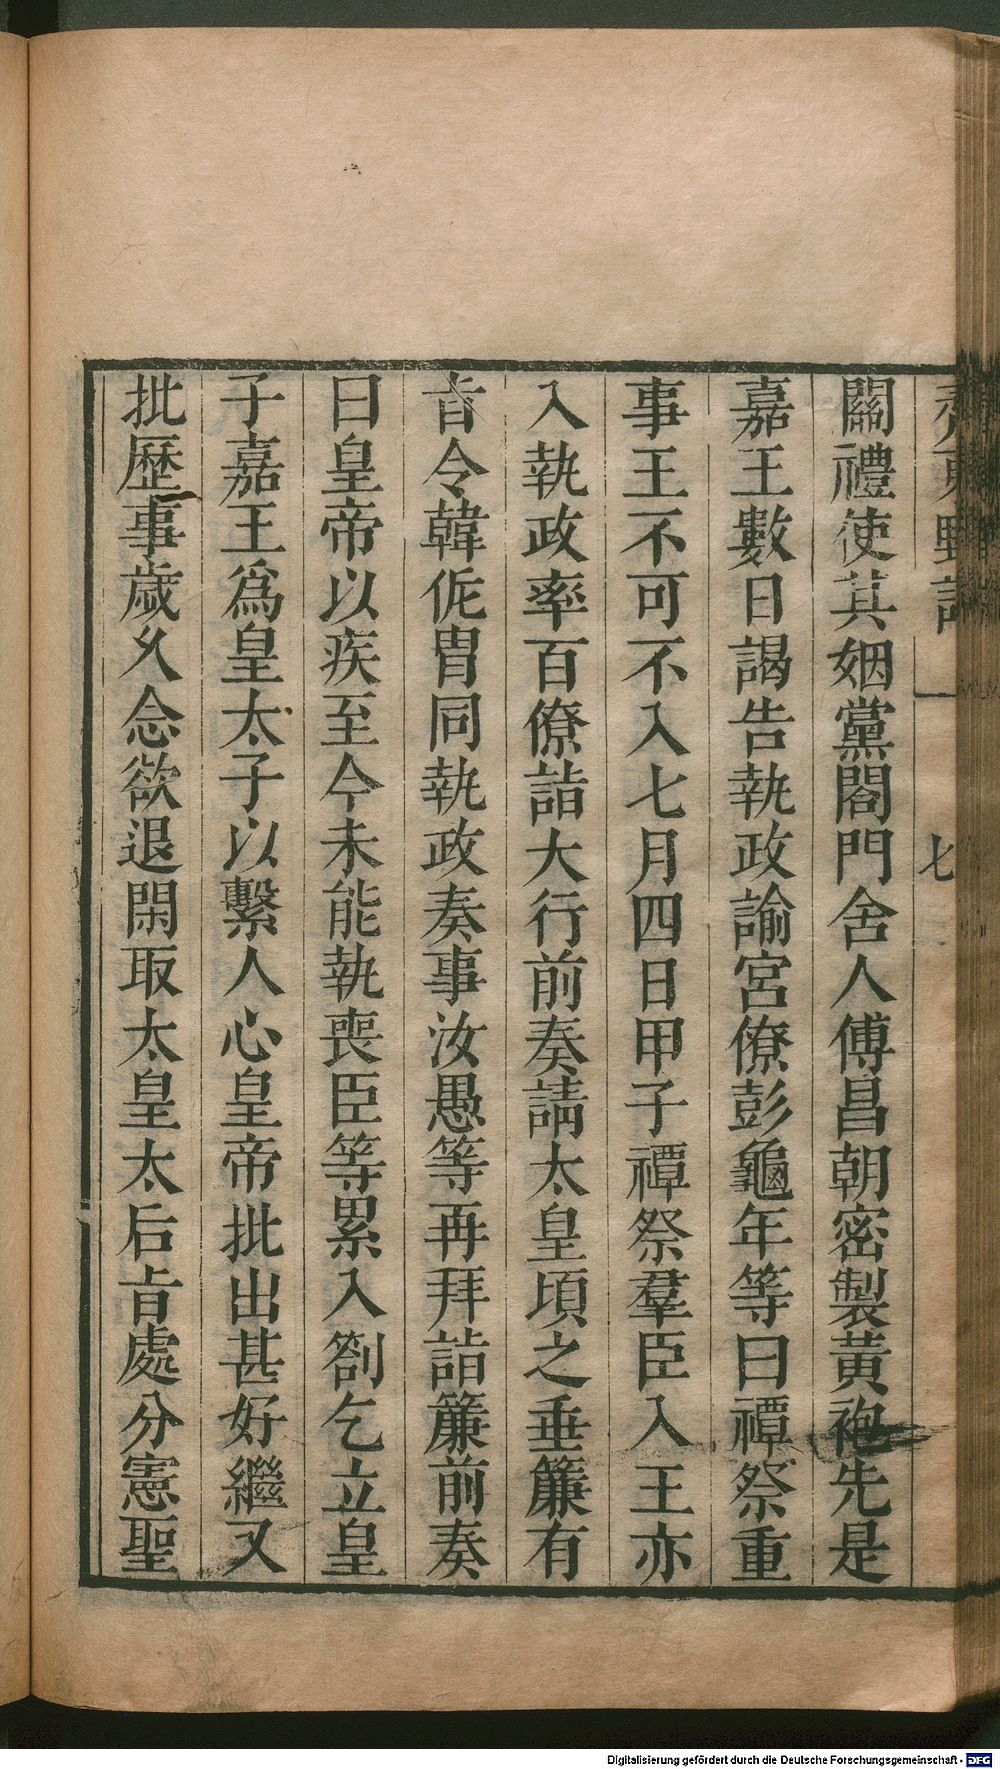 齊東野語
一
七
關禮使其姻黨閤門舍人傅昌朝密製黃袍先是
嘉王數日謁告執政諭宮僚彭龜年等曰禫祭重
事王不可不入七月四日甲子禫祭羣臣入王亦
入執政率百僚詣大行前奏請太皇頃之垂簾有
旨令韓侂胄同執政奏事汝愚等再拜詣簾前奏
曰皇帝以疾至今未能執喪臣等累入劄乞立皇
子嘉王爲皇太子以繫人心皇帝批出甚好繼又
批歷事歲久念欲退閑取太皇太后旨處分憲聖
Digitalisierung gefördert durch die Deutsche Forschungsgemeinschaft - DFG